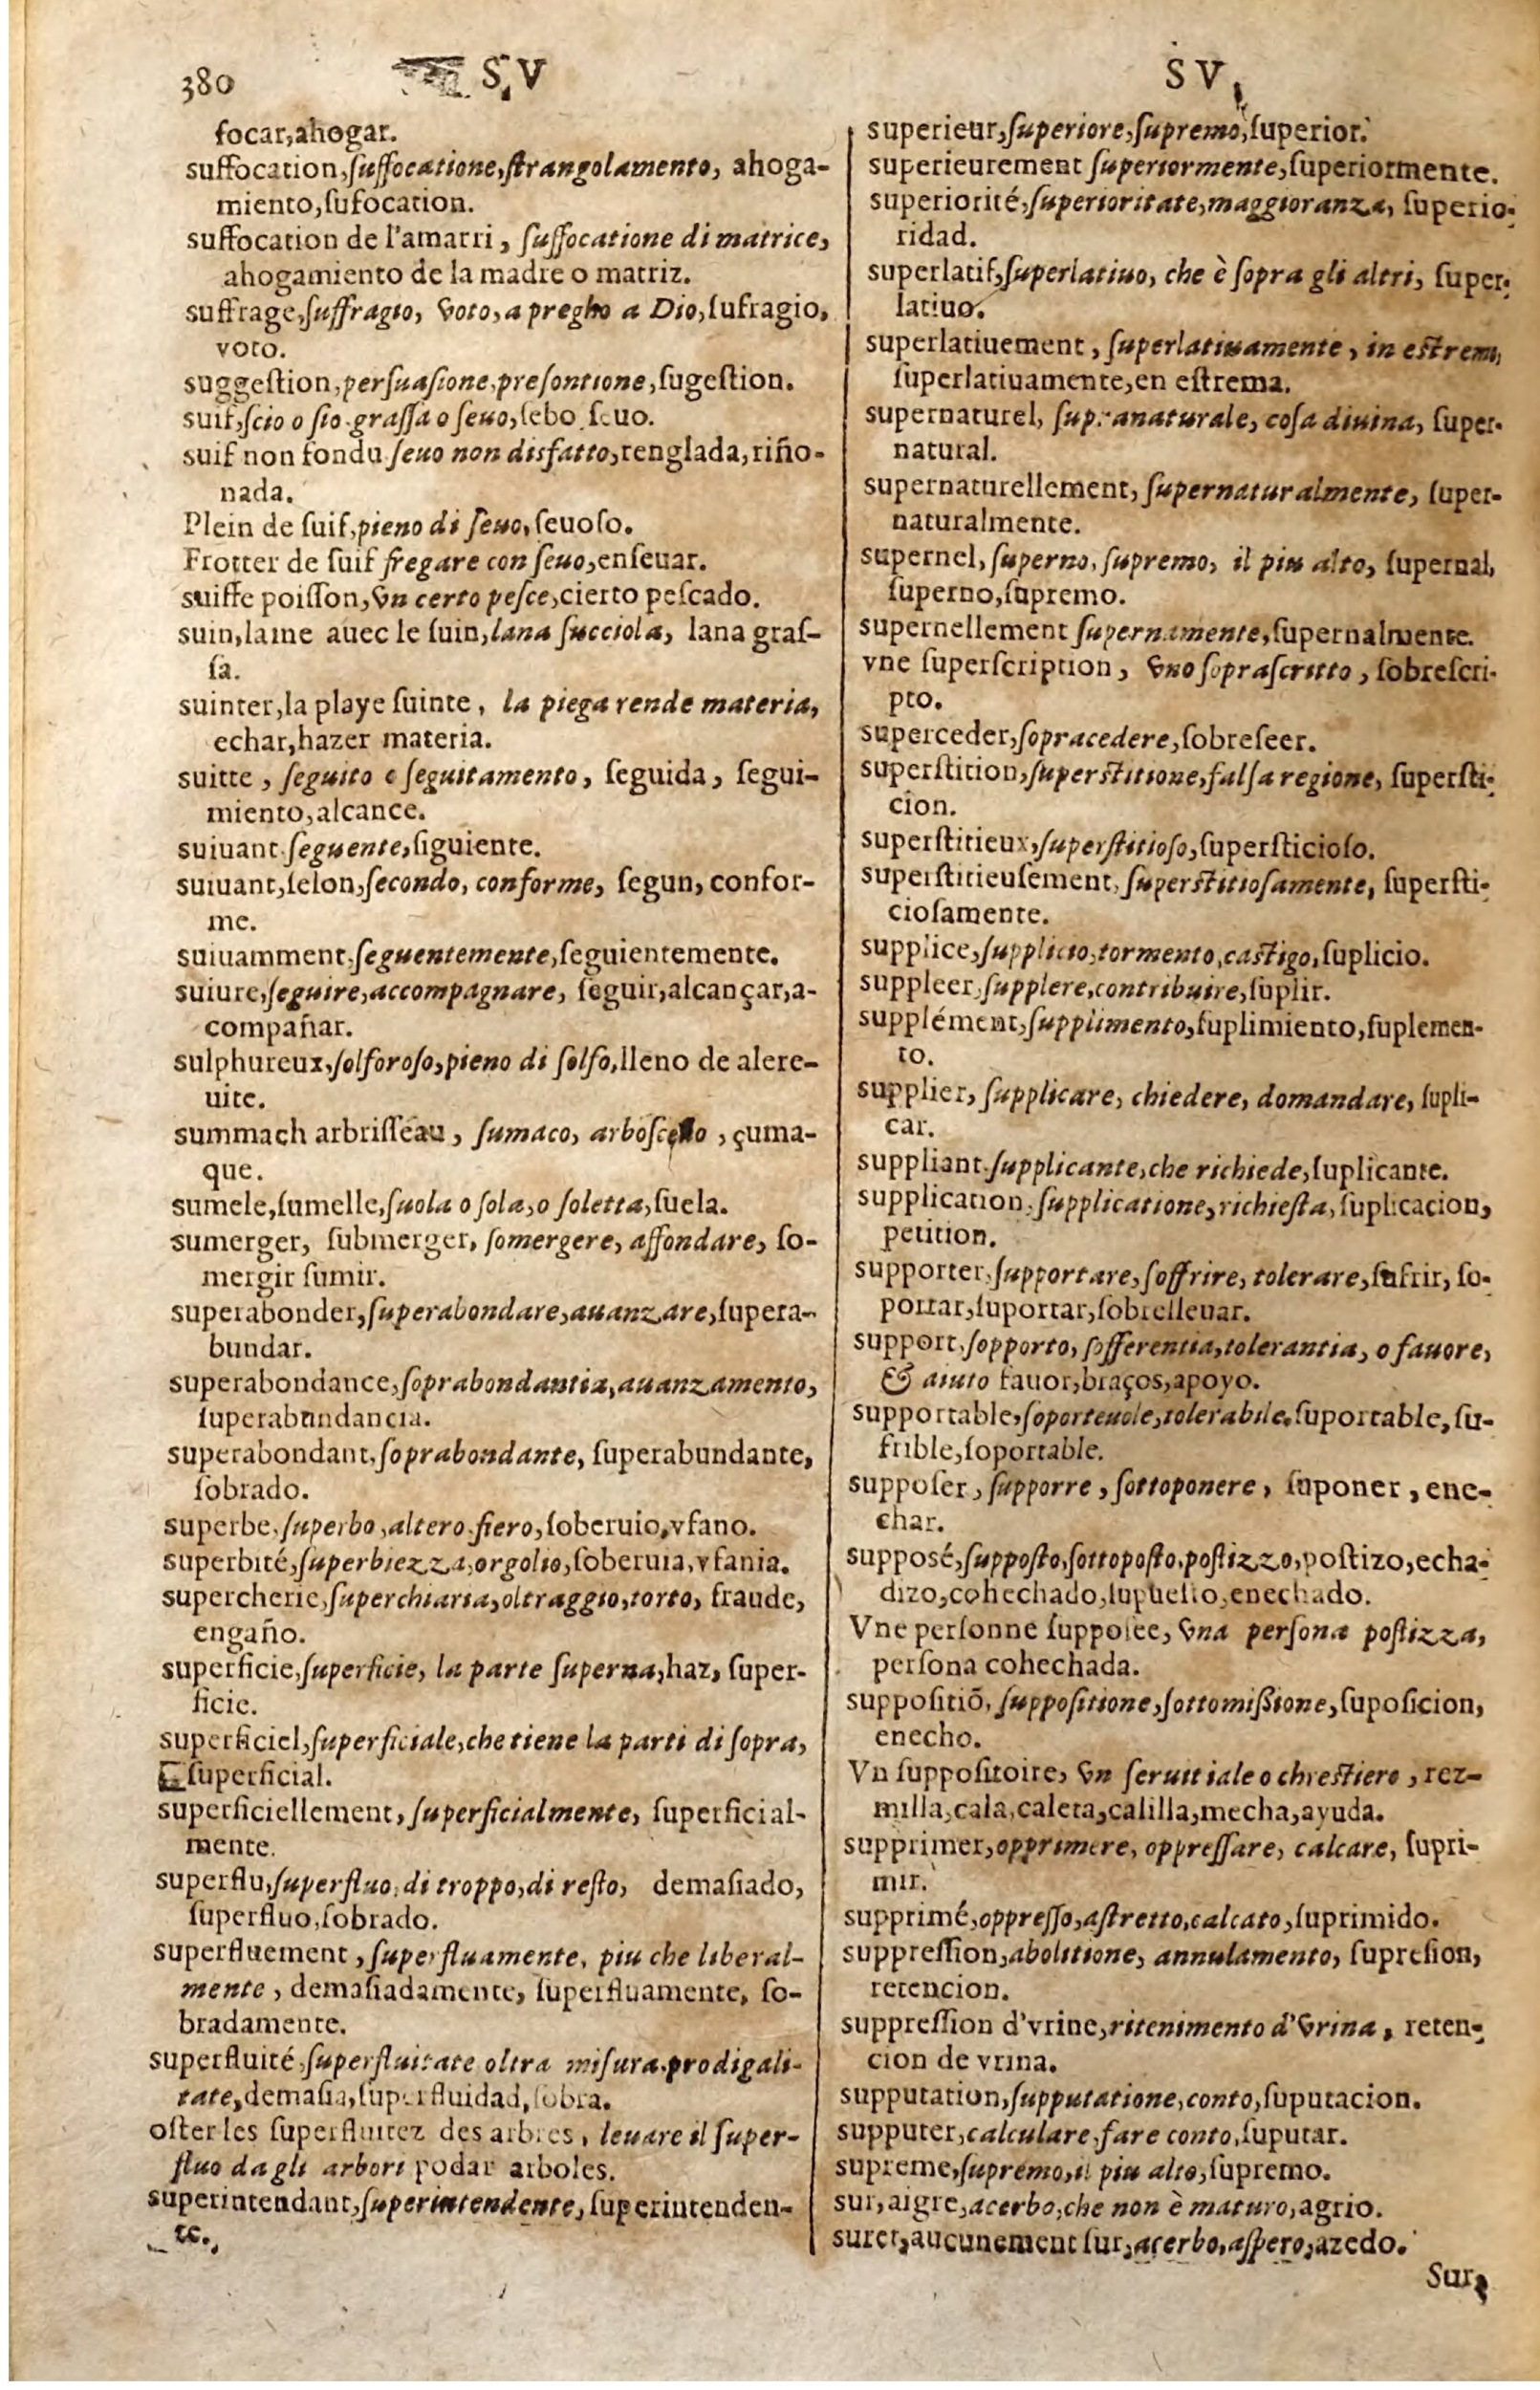 380 SV
SV
focar,ahogar.
suffocation,ſuffocatione,ſtrangolamento, ahoga-
miento,ſufocation.
suffocation de l'amarri, ſuffocatione di matrice,
ahogamiento de la madre o matriz.
suffrage,ſuffragio, voto, a pregho a Dio,ſufragio,
voto.
suggeſtion,perſuaſione,preſontione,ſugeſtion.
suif,ſcio o ſio graſſa o ſeuo,ſebo ſeuo.
suif non fondu ſeuo non disfatto,renglada,riño-
nada.
Plein de suif,pieno di ſeuo,ſeuoſo.
Frotter de ſuif fregare con ſeuo,enſeuar.
suiffe poiſſon,vn certo peſce,cierto peſcado.
suin,laine auec le ſuin,lana ſucciola, lana graſ-
ſa.
suinter,la playe ſuinte, la piega rende materia,
echar,hazer materia.
suitte, ſeguito e ſeguitamento, ſeguida, ſegui-
miento,alcance.
suiuant ſeguente,ſiguiente.
suiuant,ſelon,ſecondo, conforme, ſegun, confor-
me.
suiuamment,ſeguentemente,ſeguientemente.
suiure,ſeguire,accompagnare, ſeguir,alcançar,a-
compañar.
sulphureux,ſolforoſo,pieno di ſolfo,lleno de alcre-
uite.
summach arbriſſeau, ſumaco, arboſcello, çuma-
que.
sumele,ſumelle,ſuola o ſola,o ſoletta,ſuela.
sumerger, ſubmerger, ſomergere, affondare, ſo-
mergir ſumir.
superabonder,ſuperabondare,auanzare,ſupera-
bundar.
superabondance,ſoprabondantia,auanzamento,
ſuperabundancia.
superabondant,ſoprabondante, ſuperabundante,
ſobrado.
superbe,ſuperbo,altero,fiero,ſoberuio,vfano.
superbité,ſuperbiezza,orgolio,ſoberuia,vfania.
supercherie,ſuperchiaria,oltraggio,torto, fraude,
engaño.
superficie,ſuperficie, la parte ſuperna,haz, ſuper-
ficie.
superficiel,ſuperficiale,che tiene la parti di ſopra,
ſuperficial.
superficiellement,ſuperficialmente, ſuperficial-
mente.
superflu,ſuperfluo,di troppo,di reſto, demaſiado,
ſuperfluo,ſobrado.
superfluement,ſuperfluamente, piu che liberal-
mente, demaſiadamente, ſuperfluamente, ſo-
bradamente.
superfluité,ſuperfluitate oltra miſura.prodigali-
tate,demaſia,ſuperfluidad,ſobra.
oſter les ſuperfluitez des arbres, leuare il ſuper-
fluo dagli arbori podar arboles.
superintendant,ſuperintendente,ſuperintenden-
te.
superieur,ſuperiore,ſupremo,ſuperior.
superieurement ſuperiormente,ſuperiormente.
superiorité,ſuperioritate,maggioranza, ſuperio-
ridad.
superlatif,ſuperlatiuo, che è ſopra gli altri, ſuper-
latiuo.
superlatiuement, ſuperlatiuamente, in eſtremo,
ſuperlatiuamente,en eſtrema.
supernaturel, ſupranaturale, coſa diuina, ſuper-
natural.
supernaturellement, ſupernaturalmente, ſuper-
naturalmente.
supernel,ſuperno,ſupremo, il piu alto, ſupernal,
ſuperno,ſupremo.
supernellement ſupernamente,ſupernalmente.
vne ſuperſcription, vno ſopraſcritto, ſobreſcri-
pto.
superceder,ſopracedere,ſobreſeer.
superſtition,ſuperſtitione,falſa regione, ſuperſti-
cion.
superſtitieux,ſuperſtitioſo,ſuperſticioſo.
superſtitieuſement,ſuperſtitioſamente, ſuperſti-
cioſamente.
supplice,ſupplicio,tormento,caſtigo,ſuplicio.
suppleer,ſupplere,contribuire,ſuplir.
supplément,ſupplimento,ſuplimiento,ſuplemen-
to.
supplier, ſupplicare, chiedere, domandare, ſupli-
car.
suppliant,ſupplicante,che richiede,ſuplicante.
supplication,ſupplicatione,richieſta,ſuplicacion,
petition.
supporter,ſupportare,ſoffrire, tolerare,ſufrir, ſo-
portar,ſuportar,ſobrelleuar.
support,ſopporto, ſofferentia,tolerantia, o fauore,
& aiuto fauor,braços,apoyo.
supportable,ſoporteuole,tolerabile,ſuportable,ſu-
frible,ſoportable.
suppoſer, ſupporre, ſottoponere, ſuponer, ene-
char.
supposé,ſuppoſto,ſottopoſto,poſtizzo,poſtizo,echa-
dizo,cohechado,ſupueſto,enechado.
Vne perſonne ſuppoſee, vna perſona poſtizza,
perſona cohechada.
suppoſitiõ, ſuppoſitione,ſottomißione,ſupoſicion,
enecho.
Vn ſuppoſitoire, vn ſeruitiale o chreſtiero, rez-
milla,cala,caleta,calilla,mecha,ayuda.
supprimer,opprimere, oppreſſare, calcare, ſupri-
mir.
supprimé,oppreſſo,aſtretto,calcato,ſuprimido.
suppreſſion,abolitione, annulamento, ſupreſion,
retencion.
suppreſſion d'vrine,ritenimento d'vrina, reten-
cion de vrina.
supputation,ſupputatione,conto,ſuputacion.
supputer,calculare,fare conto,ſuputar.
supreme,ſupremo,il piu alto,ſupremo.
sur,aigre,acerbo,che non è maturo,agrio.
suret,aucunement ſur,acerbo,aſpero,azedo.
Sur,